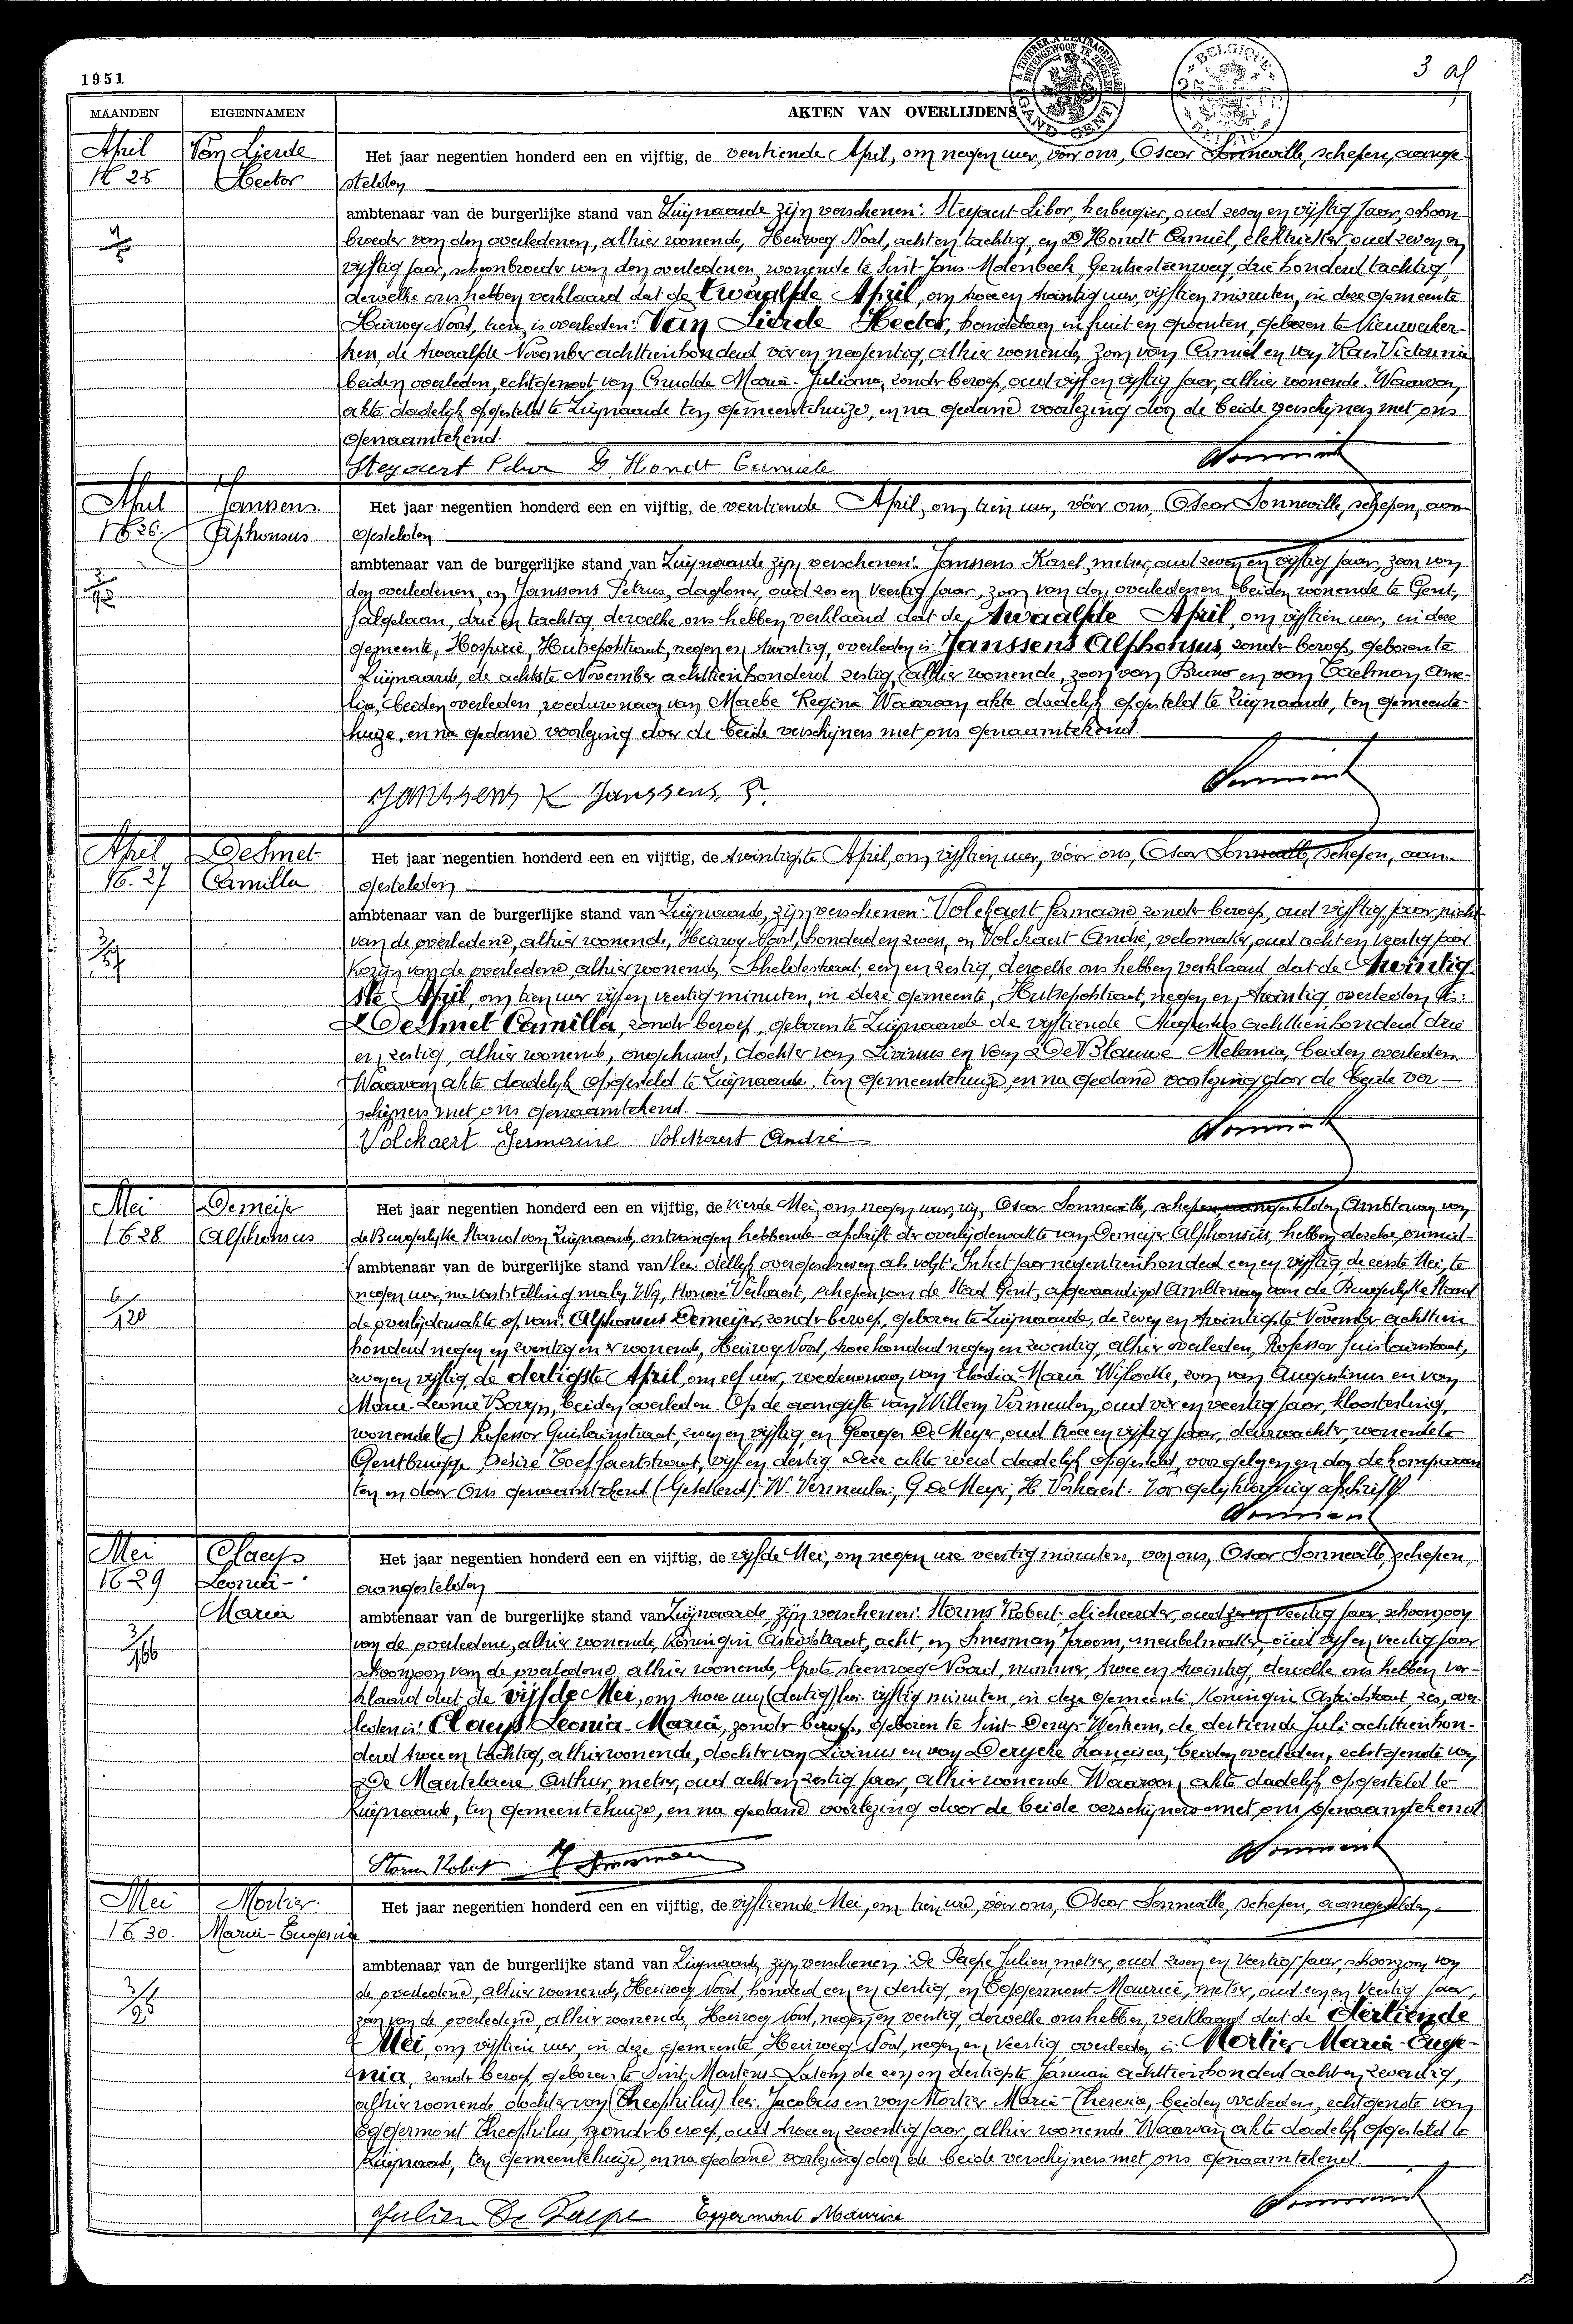 1951
3
A TIMBRER A L'EXTRAORDINAIRE
BUITENGEWOON TE ZEGELEN
GAND-GENT
BELGIQUE
MAANDEN EIGENNAMEN AKTEN VAN OVERLIJDENS
April Van Lierde Het jaar negentien honderd een en vijftig, de veertiende April, om negen uur, vóór ons, Oscar Sonneville, schepen, aange-
N 25 Hector stelden
ambtenaar van de burgerlijke stand van Zwijnaarde zijn verschenen: Steyaert Libor, herbergier, oud zeven en vijftig jaar, schoon-
broeder van den overledenen, alhier wonende, Heirweg Noord, acht en tachtig, en D'Hondt Camiel, elektrieker oud zeven en
vijftig jaar, schoonbroeder van den overledenen, wonende te Sint-Jans-Molenbeek, Gentsesteenweg, drie honderd tachtig,
dewelke ons hebben verklaard dat de twaalfde April, om twee en twintig uur, vijftien minuten, in deze gemeente
Heirweg Noord, tien, is overleden: Van Lierde Hector, handelaar in fruit en groenten, geboren te Nieuwerker-
ken, de twaalfde November achttienhonderd vier en negentig, alhier wonende, zoon van Camiel en van Victorina
beiden overleden, echtgenoot van Maria-Juliana, zonder beroep, oud vijf en vijftig jaar, alhier wonende. Waarvan
akte dadelijk opgesteld te Zwijnaarde ten gemeentehuize, en na gedane voorlezing door de beide verschijners met ons
genaamtekend.
Steyaert D'Hondt Camiele
April Janssens Het jaar negentien honderd een en vijftig, de veertiende April, om tien uur, vóór ons, Oscar Sonneville, schepen, aan
N 26 Alphonsus gestelden
ambtenaar van de burgerlijke stand van Zwijnaarde zijn verschenen: Janssens Karel, metser, oud zeven en vijftig jaar, zoon van
den overledenen, en Janssens Petrus, dagloner, oud zes en veertig jaar, zoon van den overledenen, beiden wonende te Gent,
drie en tachtig, dewelke ons hebben verklaard dat de twaalfde April, om vijftien uur, in deze
gemeente, Hospicie, Hutsepotstraat, negen en twintig, overleden is: Janssens Alphonsus, zonder beroep, geboren te
Zwijnaarde, de achtste November achttienhonderd zestig, alhier wonende, zoon van Bruno en van Taelman Ame-
lia, beiden overleden, weduwnaar van Maebe Regina. Waarvan akte dadelijk opgesteld te Zwijnaarde, ten gemeente-
huize, en na gedane voorlezing door de beide verschijners met ons genaamtekend.
Janssens K Janssens P.
April De Smet Het jaar negentien honderd een en vijftig, de twintigste April, om vijftien uur, vóór ons, Oscar Sonneville, schepen, aan-
N. 27 Camilla gestelden
ambtenaar van de burgerlijke stand van Zwijnaarde, zijn verschenen: Volckaert Germaine zonder beroep, oud vijftig jaar nicht
van de overledene, alhier wonende, Heirweg Noord, honderd en zeven, en Volckaert André, velomaker, oud acht en veertig jaar
kozijn van de overledene, alhier wonende, Scheldestraat, een en zestig, dewelke ons hebben verklaard dat de twintig-
ste April, om tien uur vijf en veertig minuten, in deze gemeente, Hutsepotstraat, negen en twintig overleden is:
De Smet Camilla, zonder beroep, geboren te Zwijnaarde de vijftiende Augustus achttienhonderd drie
en zestig, alhier wonende, ongehuwd, dochter van Livinus en van De Blauwe Melania, beiden overleden.
Waarvan akte dadelijk opgesteld te Zwijnaarde, ten gemeentehuize, en na gedane voorlezing door de beide ver-
schijners met ons genaamtekend.
Volckaert Germaine Volckaert André
Mei Demeijer Het jaar negentien honderd een en vijftig, de vierde Mei, om negen uur, wij, Oscar Sonneville, schepen aangestelden Ambtenaar van
N 28 Alphonsus de Burgerlijke Stand van Zwijnaarde, ontvangen hebbende afschrift der overlijdensakte van Demeijer Alphonsius, hebben dezelve onmid-
ambtenaar van de burgerlijke stand van lees: dellijk overgeschreven als volgt: In het jaar negentienhonderd een en vijftig de eerste Mei, te
negen uur, na vaststelling maken Wij, Honoré Verhaert, schepen van de Stad Gent, afgevaardigd Ambtenaar van de Burgerlijke Stand
de overlijdensakte op van: Alphonsus Demeijer, zonder beroep, geboren te Zwijnaarde, de zeven en twintigste November achttien
honderd negen en zeventig en er wonende, Heirweg Noord, twee honderd negen en zeventig, alhier overleden, Professor Guislainstraat,
zeven en vijftig, de dertigste April, om elf uur, weduwnaar van Elodia-Maria Wijlocke, zoon van Augustinus en van
Marie-Leonie Boryn, beiden overleden. Op de aangifte van Willem Vermeulen, oud vier en veertig jaar, kloosterling,
wonende Professor Guislainstraat, zeven en vijftig, en Georges De Meyer, oud twee en vijftig jaar, deurwachter, wonende te
Gentbrugge, Désiré Toeffaertstraat, vijf en dertig. Deze akte werd dadelijk opgesteld, voorgelezen en door de komparan
ten en door Ons genaamtekend (Getekend) W. Vermeulen, G. De Meyer, H. Verhaert. Voor gelijkluidig afschrift
Mei Claeys Het jaar negentien honderd een en vijftig, de vijfde Mei, om negen ure veertig minuten, voor ons, Oscar Sonneville, schepen,
N 29 Leonia- aangestelden
Maria ambtenaar van de burgerlijke stand van Zwijnaarde, zijn verschenen: Storms Robert, oud zeven en veertig jaar, schoonzoon
van de overledene, alhier wonende, Koningin Astridstraat, acht, en Smesman Jeroom, meubelmaker, oud vijf en veertig jaar
schoonzoon van de overledene, alhier wonende, Grote steenweg Noord, nummer, twee en twintig, dewelke ons hebben ver-
klaard dat de vijfde Mei, om twee uur (dertig) lees: vijftig minuten, in deze gemeente, Koningin Astridstraat, zes, over-
leden is: Claeys Leonia-Maria, zonder beroep, geboren te Sint-Denys-Westrem, de dertiende Juli achttienhon-
derd twee en tachtig, alhier wonende, dochter van Livinus en van Derycke Francisca, beiden overleden, echtgenote van
De Maertelaere Arthur, metser, oud acht en zestig jaar, alhier wonende. Waarvan akte dadelijk opgesteld te
Zwijnaarde, ten gemeentehuize, en na gedane voorlezing door de beide verschijners met ons genaamtekend
Storms Robert Smesman
Mei Mortier Het jaar negentien honderd een en vijftig, de vijftiende Mei, om tien ure, vóór ons, Oscar Sonneville, schepen, aangestelden
N 30. Maria-Eugenia
ambtenaar van de burgerlijke stand van Zwijnaarde, zijn verschenen: De Paepe Julien, metser, oud zeven en veertig jaar, schoonzoon van
de overledene, alhier wonende, Heirweg Noord, honderd een en dertig, en Eggermont Maurice, metser, oud een en veertig jaar,
zoon van de overledene, alhier wonende, Heirweg Noord, negen en veertig, dewelke ons hebben verklaard dat de dertiende
Mei, om vijftien uur, in deze gemeente, Heirweg Noord, negen en veertig, overleden is: Mortier Maria-Euge-
nia, zonder beroep, geboren te Sint Martens-Latem de een en dertigste Januari achttienhonderd acht en zeventig,
alhier wonende dochter van (Theophilus) lees: Jacobus en van Mortier Marie-Theresia, beiden overleden, echtgenote van
Eggermont Theophilus, zonder beroep, oud twee en zeventig jaar, alhier wonende. Waarvan akte dadelijk opgesteld te
Zwijnaarde, ten gemeentehuize, en na gedane voorlezing door de beide verschijners met ons genaamtekend.
Julien De Paepe Eggermont Maurice